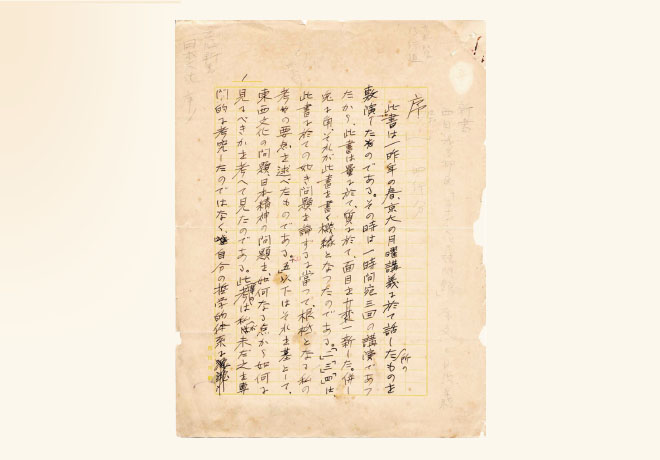 序
此書は一昨年の春、京大の月曜講義に於て話したものを
所の
敷演したものである。その時は一時間宛三回の講演であつ
たから、此書は量に於て、質に於て、面目を 変一新した。併し
兎に角、それが此書を書く機縁となつたのである。「一」「二」「三」「四」は
此書に於ての如き問題を論ずるに当つて、根柢となる私の
考への要点を述べたものである。「五」以下はそれを基として、
東西文化の問題、日本精神の問題を、如何なる点から如何に
見るべきかを考へて見たのである。此 は私は未だ之を専
門的に考究したのではなく、唯自分の哲学的体系